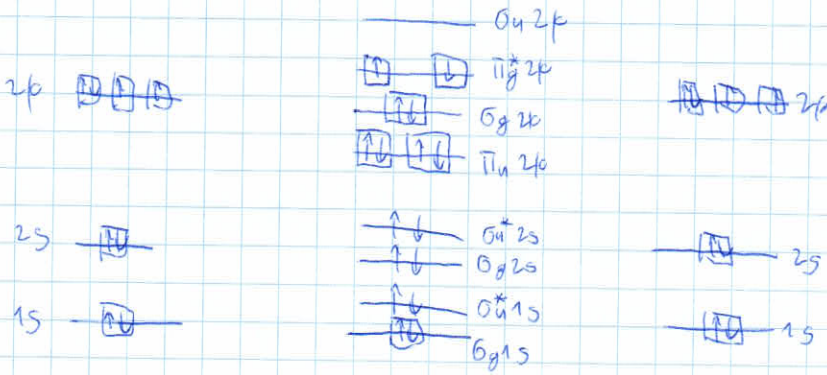 σu 2p
2p π*g 2p 2p
σg 2p
πu 2p
2s σu* 2s 2s
σg 2s
1s σu* 1s 1s
σg 1s